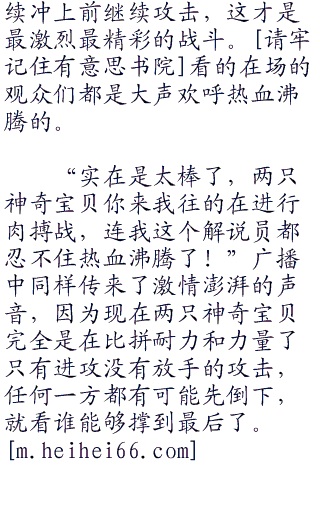 续冲上前继续攻击，这才是
最激烈最精彩的战斗。[请牢
记住有意思书院]看的在场的
观众们都是大声欢呼热血沸
腾的。
“实在是太棒了，两只
神奇宝贝你来我往的在进行
肉搏战，连我这个解说员都
忍不住热血沸腾了！”广播
中同样传来了激情澎湃的声
音，因为现在两只神奇宝贝
完全是在比拼耐力和力量了
只有进攻没有放手的攻击，
任何一方都有可能先倒下，
就看谁能够撑到最后了。
[m.heihei66.com]